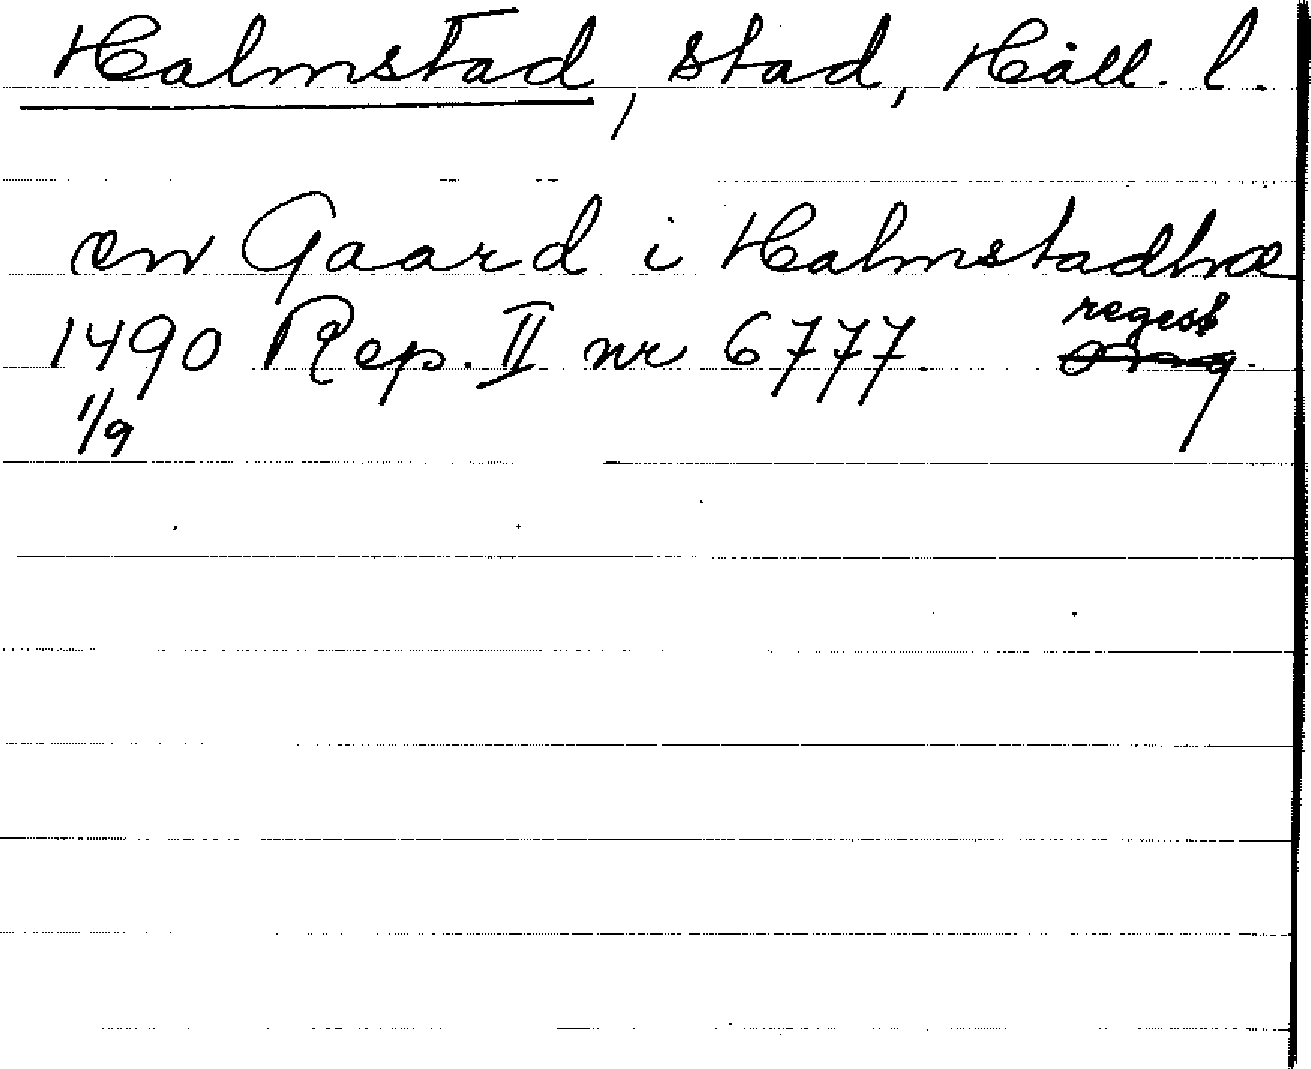 Halmstad, stad, Hall. l.
en Gaard i Halmstadhræ
1490 Rep. II nr 6777. regest
1/9